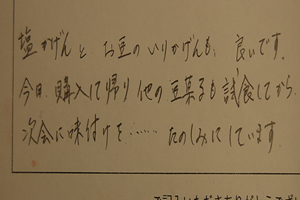 塩かげんと、お豆のいりかげんも、良いです。
今日、購入して帰り他の豆菓子も試食してから、
次会に味付けを……たのしみにしています